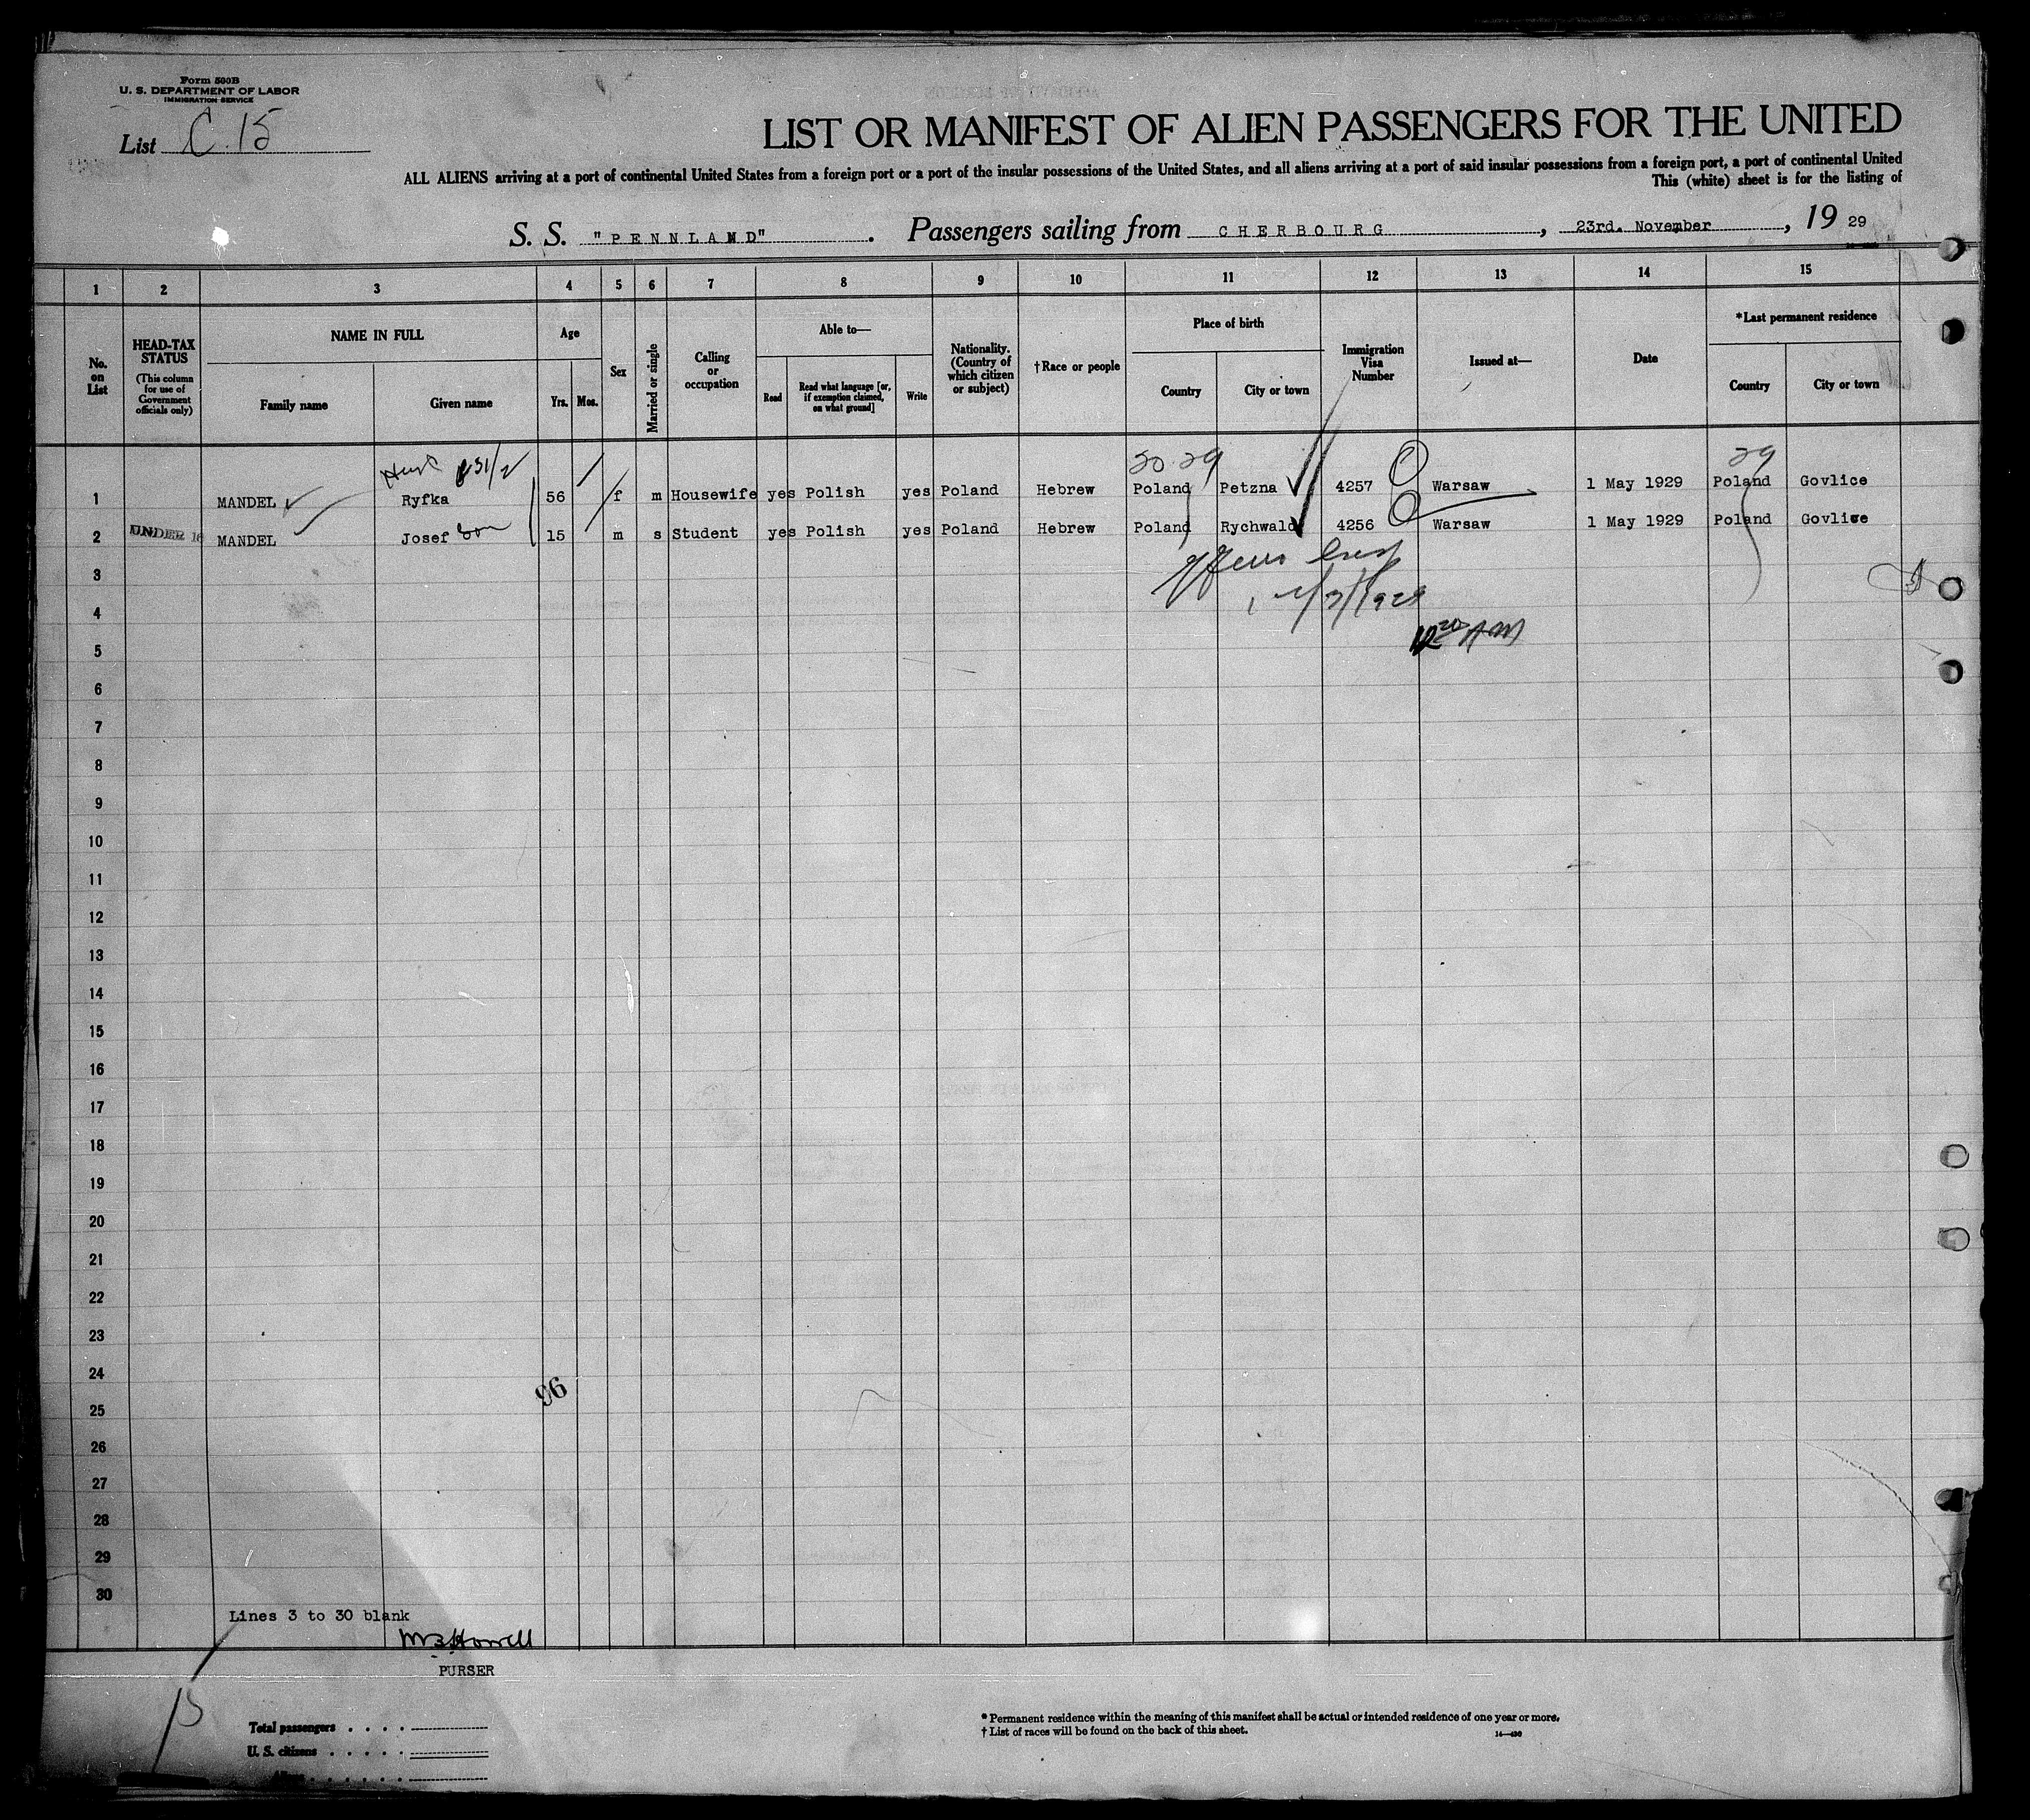 Form 500B
U. S. DEPARTMENT OF LABOR
IMMIGRATION SERVICE
List C. 15
LIST OR MANIFEST OF ALIEN PASSENGERS FOR THE UNITED
ALL ALIENS arriving at a port of continental United States from a foreign port or a port of the insular possessions of the United States, and all aliens arriving at a port of said insular possessions from a foreign port, a port of continental United
This (white) sheet is for the listing of
S. S. "PENNLAND" . Passengers sailing from CHERBOURG , 23rd. November , 19 29
1 2 3 4 5 6 7 8 9 10 11 12 13 14 15
No. on List
HEAD-TAX STATUS (This column for use of Government officials only)
NAME IN FULL
Family name
Given name
Age
Yrs.
Mos.
Sex
Married or single
Calling or occupation
Able to—
Read
Read what language [or, if exemption claimed, on what ground]
Write
Nationality. (Country of which citizen or subject)
† Race or people
Place of birth
Country
City or town
Immigration Visa Number
Issued at—
Date
*Last permanent residence
Country
City or town
29
1 MANDEL Ryfka 56 f m Housewife yes Polish yes Poland Hebrew Poland Petzna 4257 Warsaw 1 May 1929 Poland Govlice
2 UNDER 16 MANDEL Josef son 15 m s Student yes Polish yes Poland Hebrew Poland Rychwald 4256 Warsaw 1 May 1929 Poland Govlice
3
4
AM
5
6
7
8
9
10
11
12
13
14
15
16
17
18
19
20
21
22
23
24
96
25
26
27
28
29
30
Lines 3 to 30 blank
PURSER
Total passengers . . . .
U. S. citizens . . . . .
Aliens . . . . . .
* Permanent residence within the meaning of this manifest shall be actual or intended residence of one year or more.
† List of races will be found on the back of this sheet.